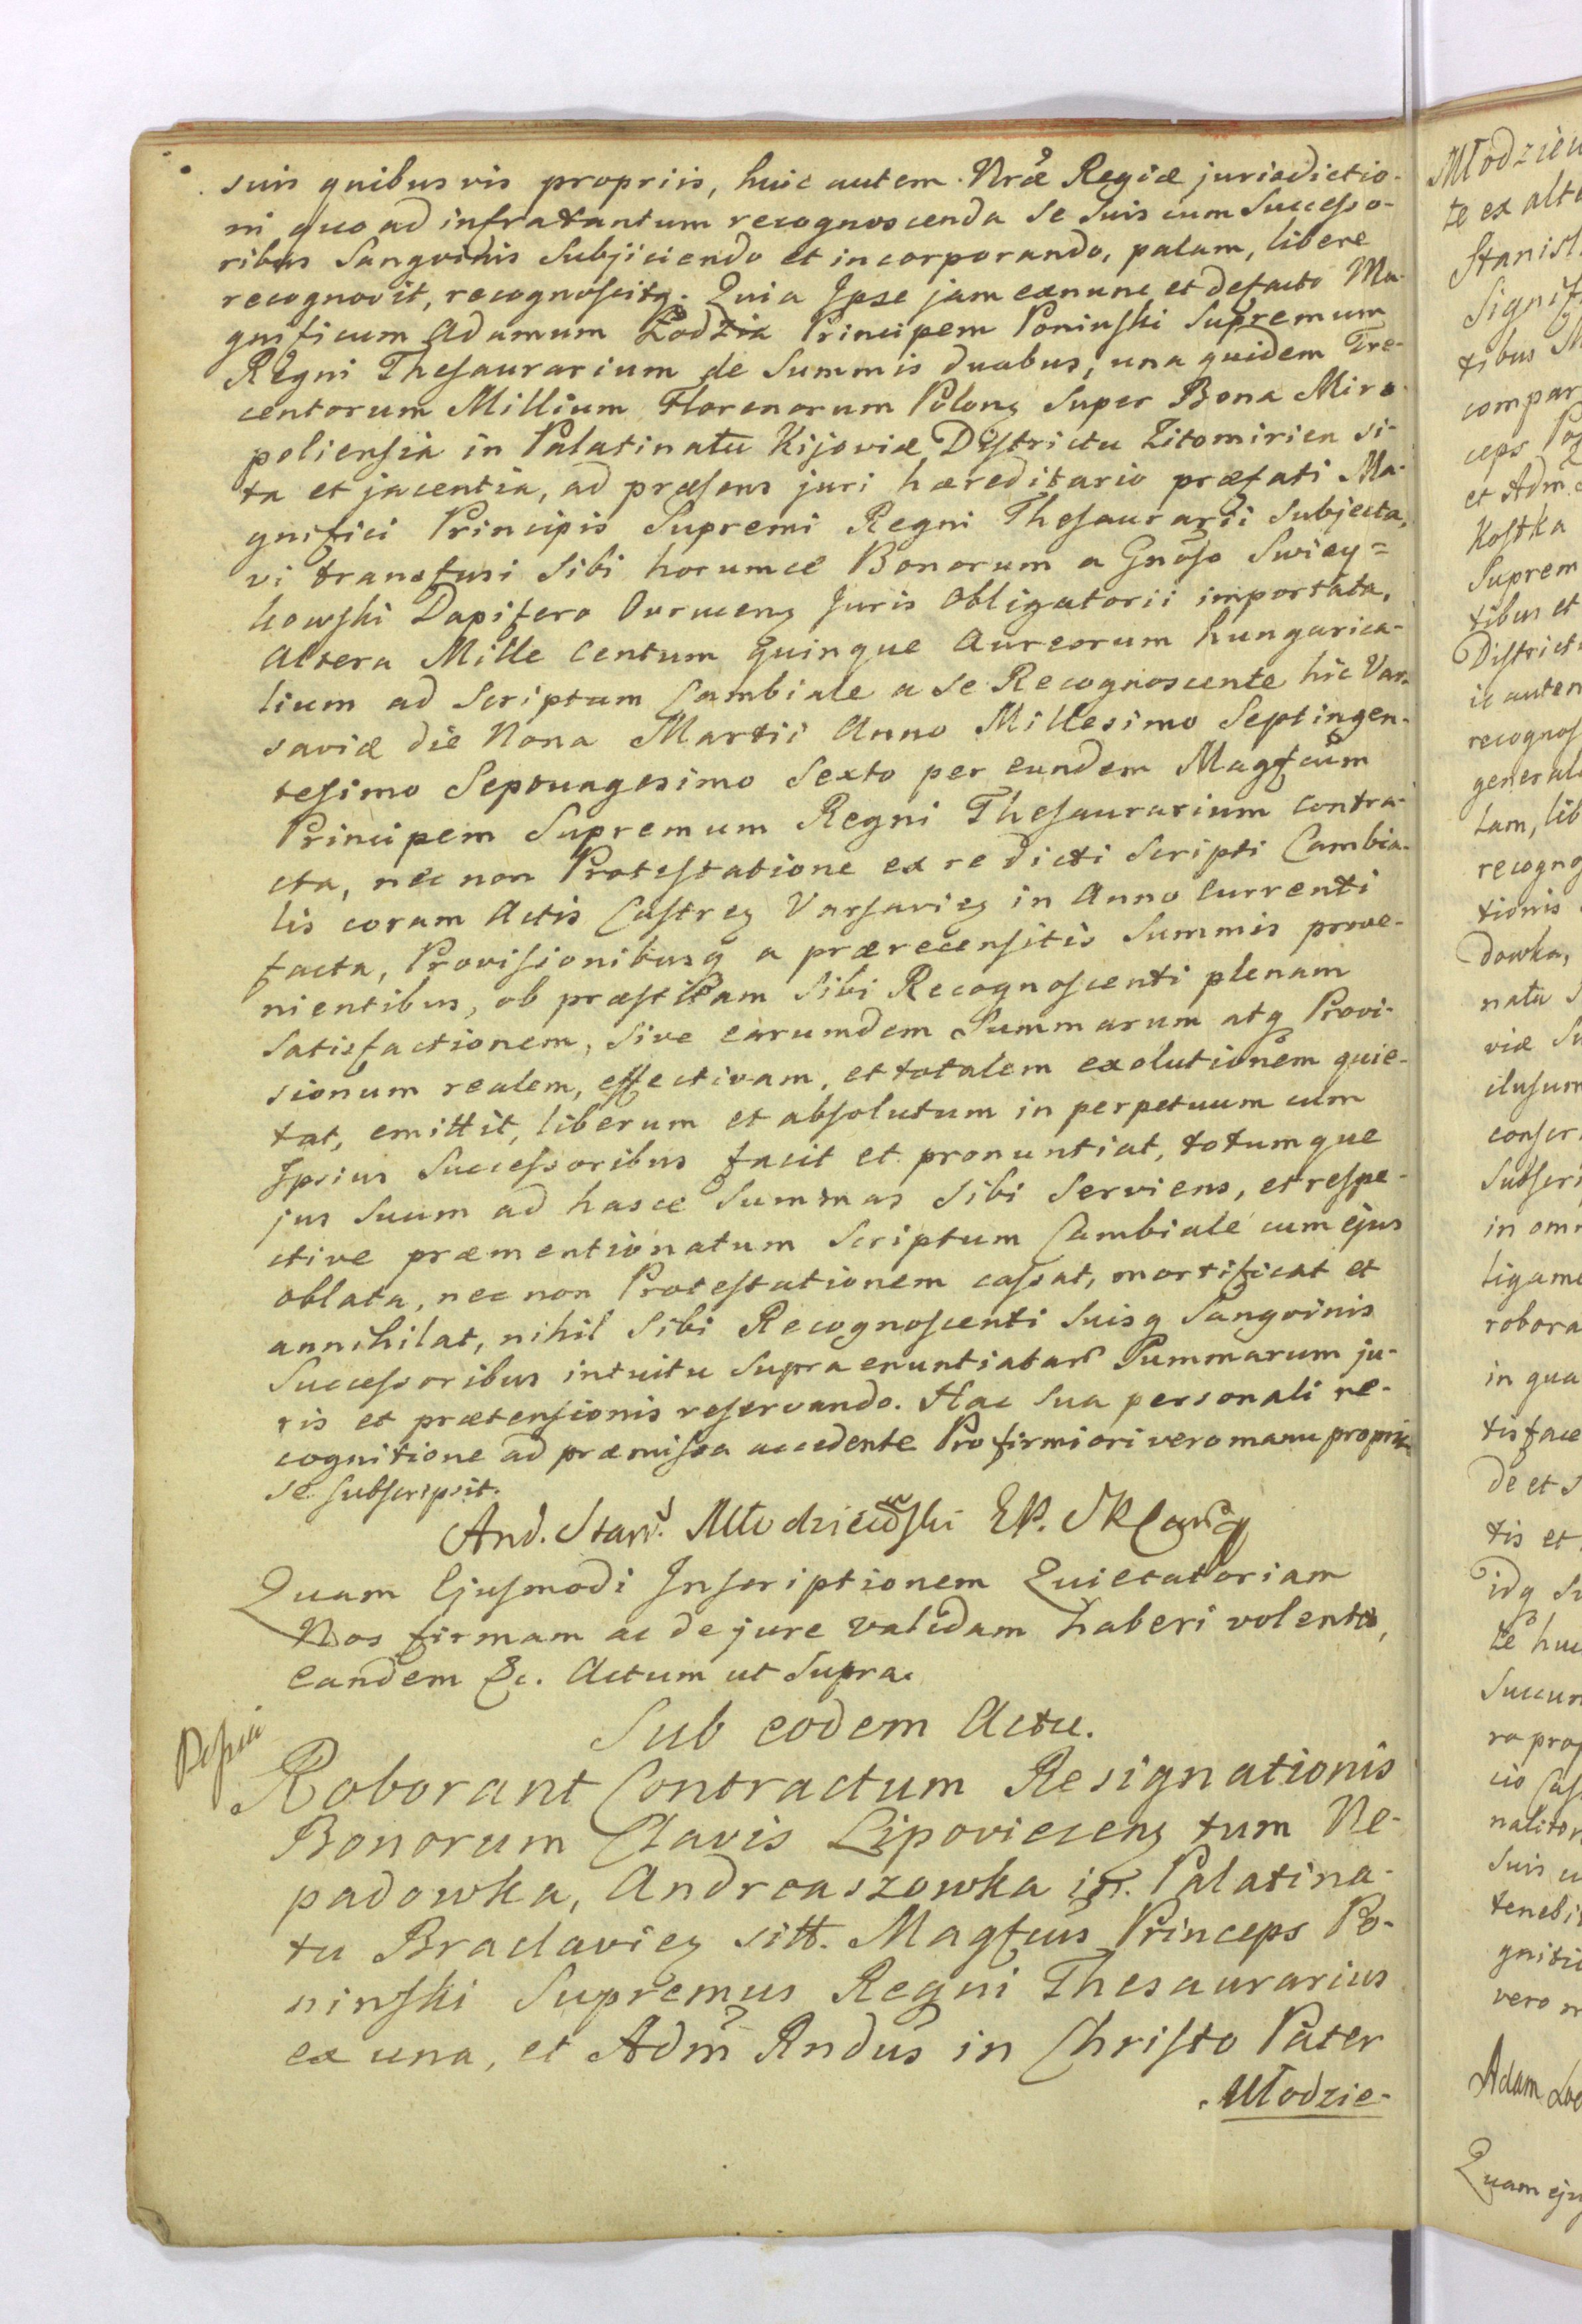 suis quibusvis propriis, huic autem Nrae Regiae jurisdictio-
ni quo ad infratantum recognoscenda se suis cum Successo-
ribus Sangvinis Subjiciendo et incorporando, palam, libere
recognovit, recognoscitq. Quia Ipse jam exnunc et defacto Ma-
gnificum Adamum Łodzia Principem Poninski Supremum
Regni Thesaurarium de Summis duabus, una quidem Tre-
centorum Millium Florenorum Polonq Super Bona Miro-
poliensia in Palatinatu Kijoviæ Districtu Zitomirien si-
ta et jacentia, ad præsens juri hæreditario præfati Ma-
gnifici Principis Supremi Regni Thesaurarii Subjecta,
vi transfusi Sibi horumce Bonorum a Gnoso Swiey=
kowski Dapifero Owrucenq Juris Obligatorii importata,
Altera Mille Centum quinque Aureorum hungarica-
lium ad Scriptum Cambiale a se Recognoscente hic Var-
saviæ die Nona Martii Anno Millesimo Septingen-
tesimo Septuagesimo Sexto per eundem Magfcum
Principem Supremum Regni Thesaurarium contra-
cta, nec non Protestatione ex re dicti Scripti Cambia-
lis coram Actis Castreq Varsavieq in Anno currenti
facta, Provisionibusq a prærecensitis Summis prove-
nientibus, ob præstitam Sibi Recognoscenti plenam
Satisfactionem, Sive earumdem Summarum atq Provi-
sionum realem, effectivam, et totalem exolutionem quie-
tat, emittit, liberum et absolutum in perpetuum cum
Ipsius Successoribus facit et pronuntiat, totumque
jus Suum ad hasce Summas Sibi Serviens, et respe-
ctive præmentionatum Scriptum Cambiale cum ejus
oblata, nec non Protestationem cassat, mortificat et
annihilat, nihil Sibi Recognoscenti Suisq Sangvinis
Successoribus intuitu Supra enuntiatar Summarum ju-
ris et prætensionis reservando. Hac Sua personali re-
cognitione ad præmissa accedente Pro firmiori vero manu propria
se subscripsit.
And. Stan. Młodzieiowski EP.
Quam Ejusmodi Inscriptionem Quietatoriam
Nos firmam ac de jure validam haberi volentes,
eandem &c. Actum ut Supra.
Sub eodem Actu.
Roborant Contractum Resignationis
Bonorum Clavis Lipoviecenq tum Ne-
padowka, Andreaszowka in Palatina-
tu Braclavieq sitt. Magfcus Princeps Po-
ninski Supremus Regni Thesaurarius
ex una, et Adm Rndus in Christo Pater
Młodzie-